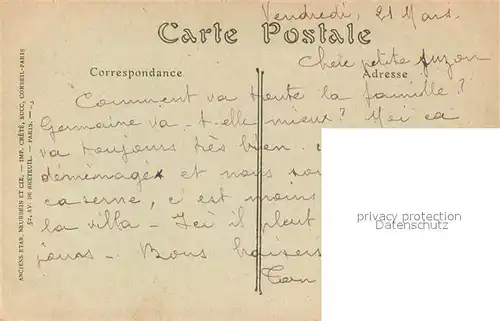 Vendredi, 21 Mars.
Carte Postale
Chère petite Suzon
Correspondance
Adresse
Comment va toute la famille ?
Germaine va-t-elle mieux ? Ici ça
va toujours très bien.
déménagé et nous
caserne, c'est moins
la villa - Ici il pleut
jours - Bons baisers
Ton
ANCIENS ETAB. NEURDEIN ET CIE. — IMP. CRÉTÉ, SUCC. CORBEIL-PARIS
52, AV. DE BRETEUIL. — PARIS.
privacy protection
Datenschutz